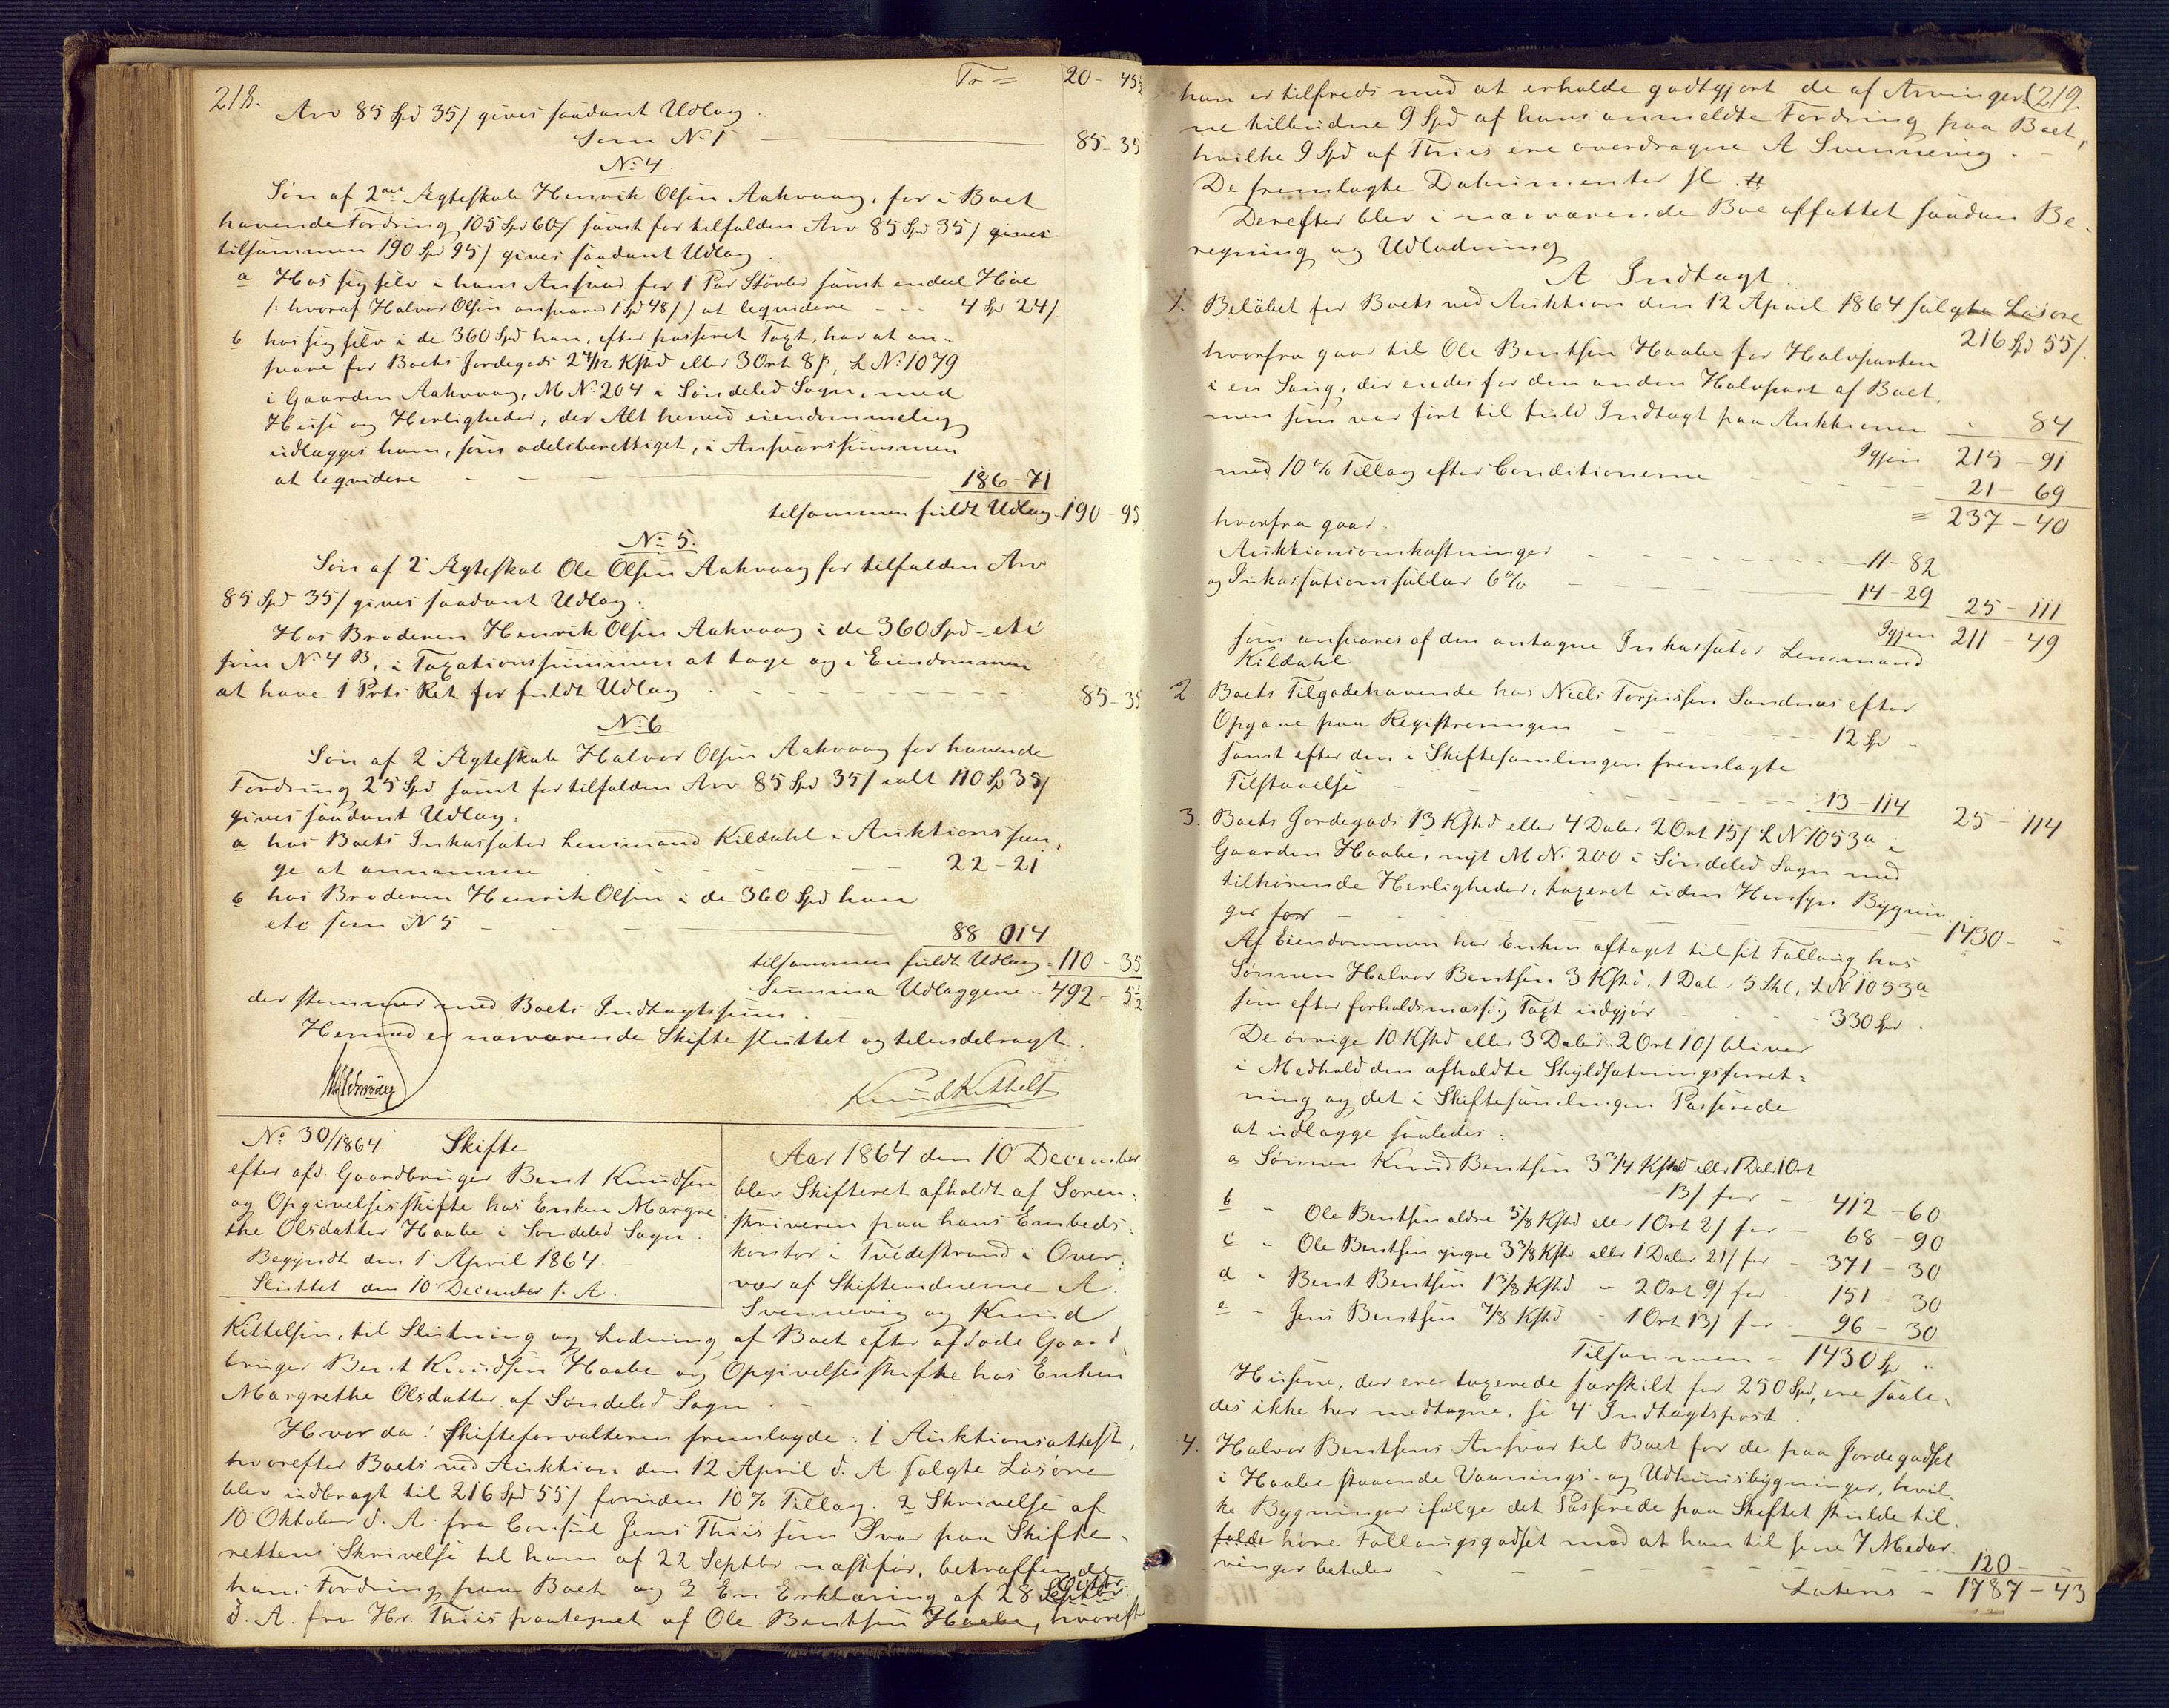 218.
Tr = 20 - 45½
Arv 85 Spd 35/ gives saadant Udlæg
Som N. 1 85-35
N: 4.
Søn af 2det Ægteskab Henrik Olsen Aakvaag, for i Boet
havende Fordring 105 Spd 60/ samt for tilfalden Arv 85 Spd 35/ gives
tilsammen 190 Spd 95/ gives saadant Udlæg
a Hos sig selv i hans Ansvar for 1 Par Støvler samt endeel Høe
/: hvoraf Halvor Olsen ansvarer 1 Spd 48/ /) at leqvidere - - - 4 Sp 24/
b hos sig selv i de 360 Spd han, efter passeret Taxt, har at an-
svare for Boets Jordegods 2 4/12 Kshd eller 3 Ort 8 ß, L N: 1079
i Gaarden Aakvaag, M N: 204 i Søndeled Sogn, med
Huse og Herligheder, der Alt herved eiendommelig
udlægges ham, som odelsberettiget, i Ansvarssummen
at leqvidere - - 186-71
tilsammen fuldt Udlæg 190-95
N: 5.
Søn af 2 Ægteskab Ole Olsen Aakvaag for tilfalden Arv
85 Spd 35/ gives saadant Udlæg:
Hos Broderen Henrik Olsen Aakvaag i de 360 Spd - etc
som N: 4 B, i Taxationssummen at tage og i Eiendommen
at have 1 Prts Ret for fuldt Udlæg - - - 85-35
N: 6
Søn af 2 Ægteskab Halvor Olsen Aakvaag for havende
Fordring 25 Spd samt for tilfalden Arv 85 Spd 35/ ialt 110 Sp 35/
gives saadant Udlæg:
a hos Boets Inkassator Lensmand Kildahl i Auktionspen-
ge at annamme - - - 22-21
b hos Broderen Henrik Olsen i de 360 Spd han
etc som N 5 - 88 014
tilsammen fuldt Udlæg - 110-35
Summa Udlæggene - 492-5½
der stemmer med Boets Indtægtssum.
Hermed er nærværende Skifte sluttet og tilendebragt.
Knud Kittels
No 30/1864. Skifte
efter afd. Gaardbruger Bent Knudsen
og Opgivelsesskifte hos Enken Margre
the Olsdatter Haabe i Søndeled Sogn.
Begyndt den 1 April 1864. -
Sluttet den 10 December s. A.
Aar 1864 den 10 December
blev Skifteret afholdt af Soren-
skriveren paa hans Embeds-
kontor i Tvedestrand i Over-
vær af Skiftevidnerne A.
Svennevig og Knud
Kittelsen, til Slutning og Lodning af Boet efter afdøde Gaard-
bruger Bent Knudsen Haabe og Opgivelsesskifte hos Enken
Margrethe Olsdatter af Søndeled Sogn. -
Hvor da: Skifteforvalteren fremlagde: 1 Auktionsattest,
hvorefter Boets ved Auktion den 12 April d. A. solgte Løsøre
blev udbragt til 216 Spd 55/ foruden 10% Tillæg. 2 Skrivelse af
10 Oktober d. A. fra Consul Jens Thiis som Svar paa Skifte-
rettens Skrivelse til ham af 22 Septbr næstfør, betræffende
hans Fordring paa Boet og 3 En Erklæring af 28 Septbr Octbr
d. A. fra Hr. Thiis paategnet af Ole Bentsen Haabe, hvoreft
219.
han er tilfreds med at erholde godtgjort de af Arvinger-
ne tilbudne 9 Spd af hans anmeldte Fordring paa Boet,
hvilke 9 Spd af Thiis ere overdragne A. Svennevig. -
De fremlagte Dokumenter fl. #
Derefter blev i nærværende Boe affattet saadan Be-
regning og Udlodning
A Indtægt.
1. Beløbet for Boets ved Auktion den 12 April 1864 solgte Løsøre
216 Spd 55/.
hvorfra gaar til Ole Bentsen Haabe for Halvparten
i en Sæng, der eiedes for den anden Halvpart af Boet,
men som var ført til fuld Indtægt paa Auktionen - " 84
Igjen 215-91
med 10% Tillæg efter Conditionerne - - - 21-69
= 237-40
hvorfra gaar.
Auktionsomkostninger - - - 11-82
og Inkassationssallær 6% - - 14-29 25-111
Igjen 211-49
som ansvares af den antagne Inkassator Lensmand
Kildahl
2. Boets Tilgodehavende hos Niels Torjussen Sandnæs efter
Opgave paa Registreringen - - - 12 Sp -
samt efter den i Skiftesamlingen fremlagte
Tilstaaelse - - - 13-114 25-114
3. Boets Jordegods 13 Kshd eller 4 Daler 2 Ort 15/ L N 1053a i
Gaarden Haabe, nyt M N. 200 i Søndeled Sogn med
tilhørende Herligheder, taxeret uden Hensyn Bygnin-
ger for - - - 1430 - "
Af Eiendommen har Enken aftaget til sit Follaug hos
Sønnen Halvor Bentsen 3 Kshd. 1 Dal. 5 Skl, L N 1053a
som efter forholdsmæssig Taxt udgjør - - 330 Spd.
De øvrige 10 Kshd eller 3 Daler 2 Ort 10/ bliver
i Medhold den afholdte Skyldsætningsforret-
ning og det i Skiftesamlingen Passerede
at udlægge saaledes:
a Sønnen Knud Bentsen 3 3/4 Kshd eller 1 Daler 1 Ort
13/ for - - 412-60
b " Ole Bentsen ældre 5/8 Kshd eller 1 Ort 2/ for - 68-90
c " Ole Bentsen yngre 3 3/8 Kshd eller 1 Daler 21/ for - 371-30
d " Bent Bentsen 1 3/8 Kshd - 2 Ort 9/ for - 151-30
e " Jens Bentsen 7/8 Kshd - 1 Ort 13/ for - 96-30
Tilsammen - 1430 Sp "
Husene, der ere taxerede særskilt for 250 Spd, ere saale-
des ikke her medtagne, se 4 Indtægtspost.
4. Halvor Bentsens Ansvar til Boet for de paa Jordegodset
i Haabe staaende Vaanings- og Udhuusbygninger, hvil-
ke Bygninger ifølge det Passerede paa Skiftet skulde til-
falde høre Follaugsgodset mod at han til sine 7 Medar-
vinger betaler - - - 120 - -
Lateris - 1787-43